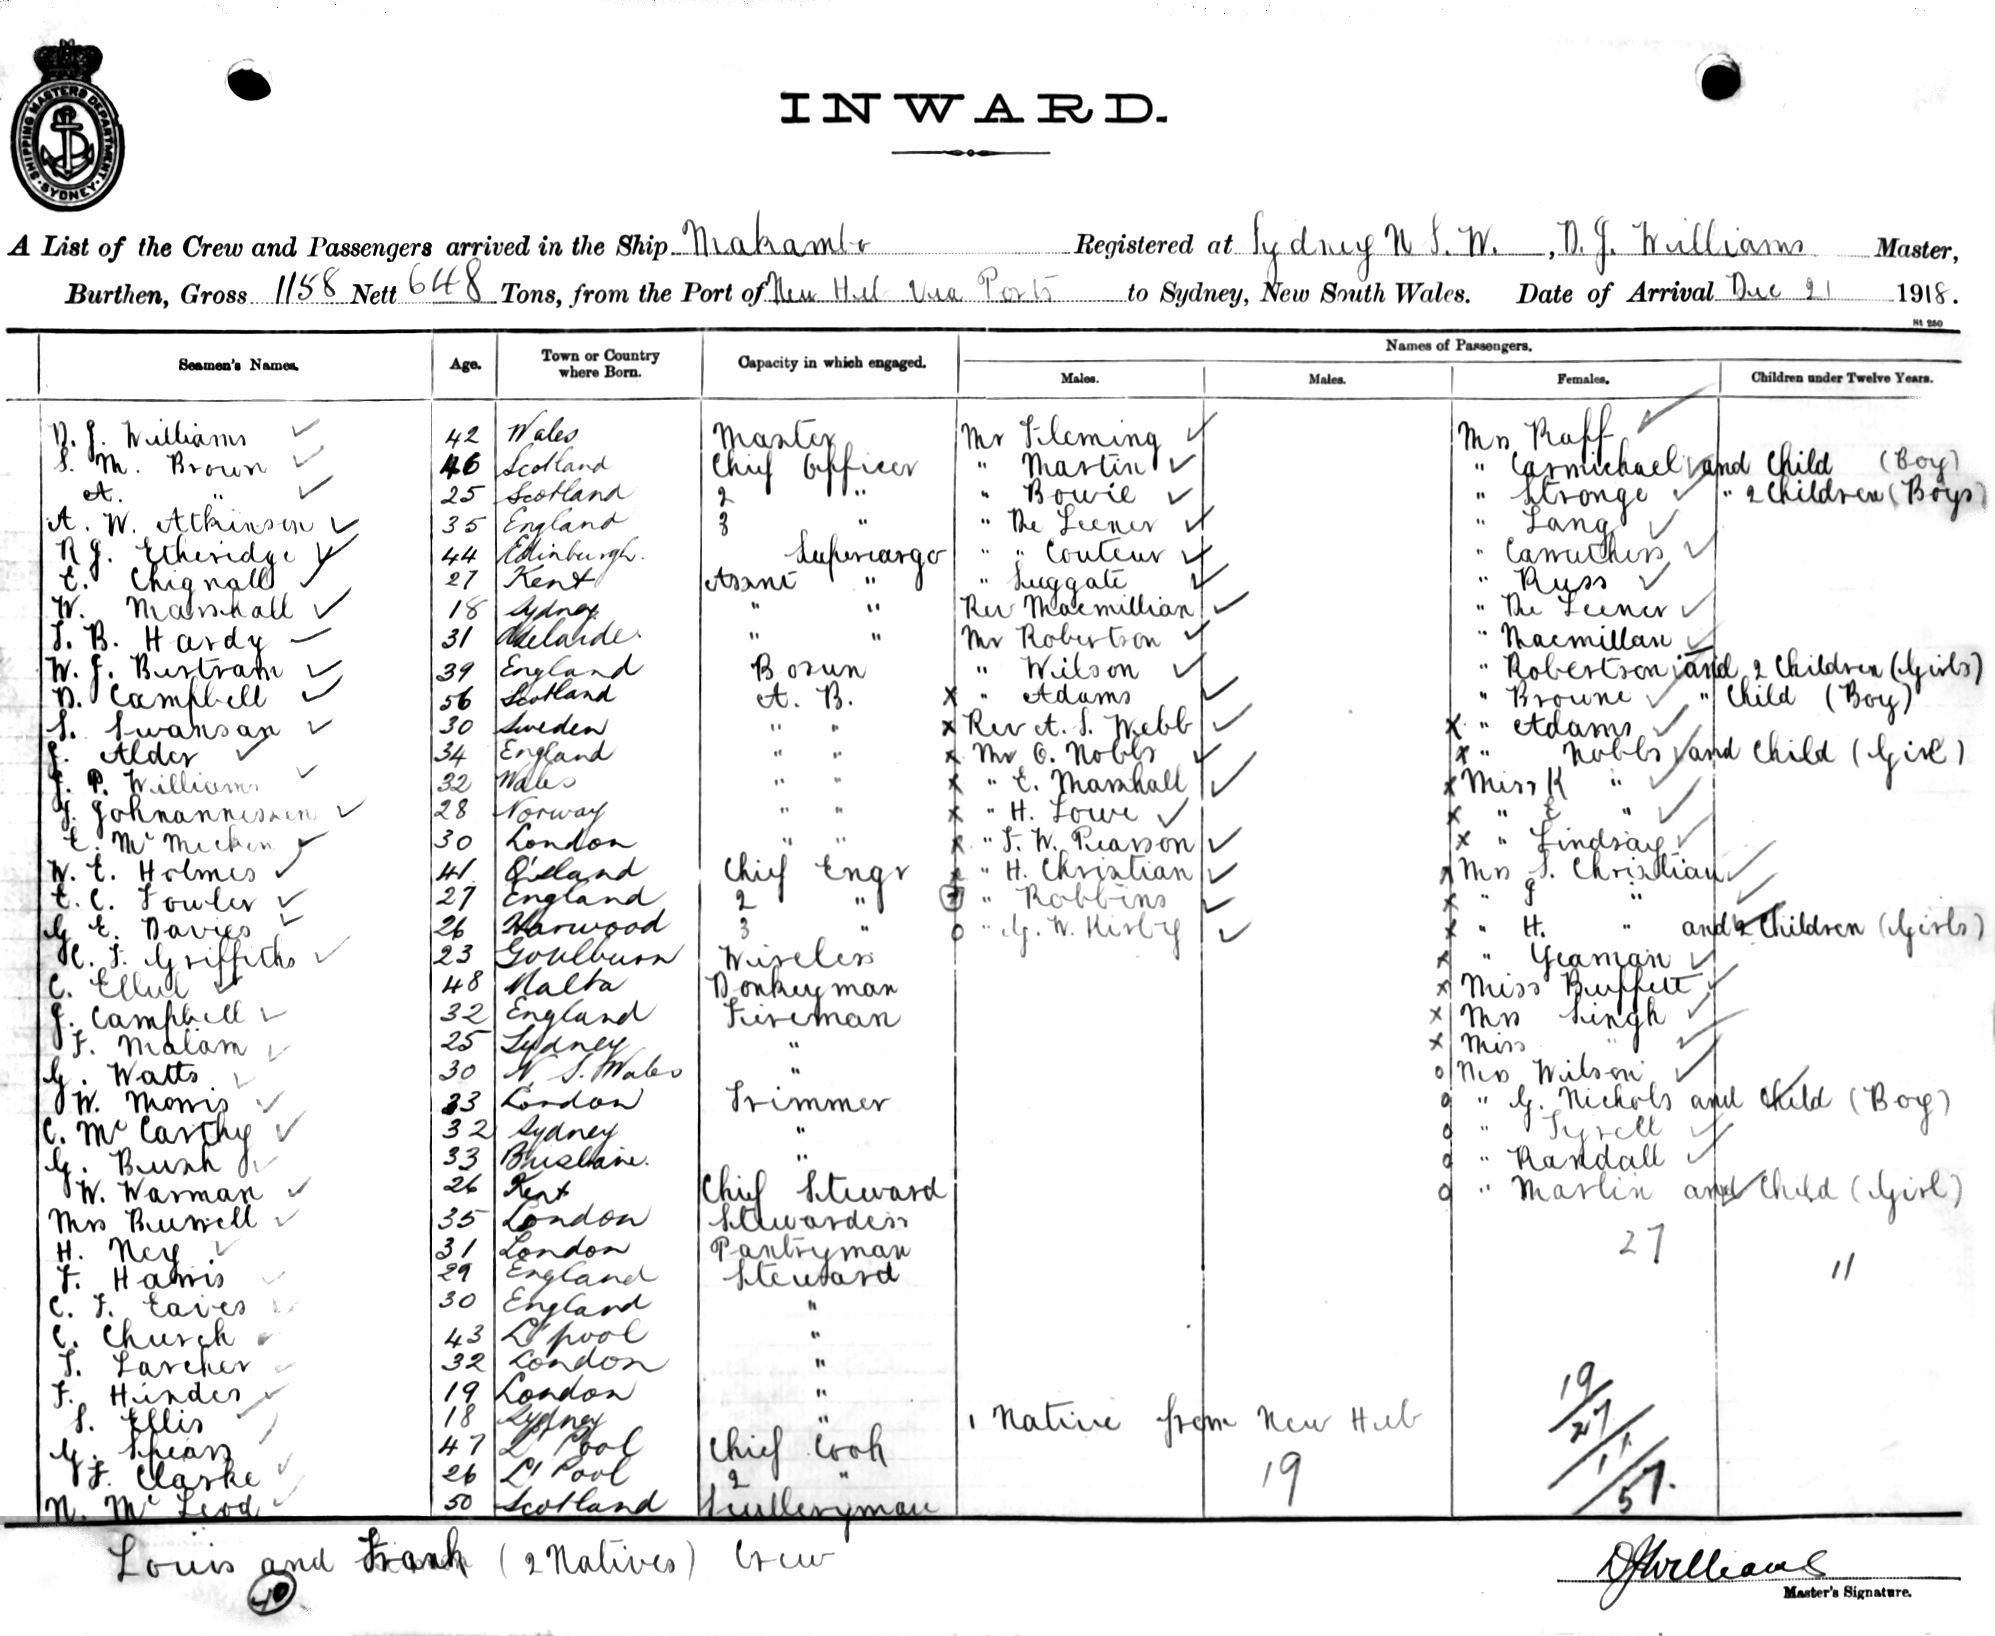 SHIPPING MASTERS DEPARTMENT
SYDNEY
INWARD.
A List of the Crew and Passengers arrived in the Ship Makambo Registered at Sydney N S. W. , D. J. Williams Master,
Burthen, Gross 1158 Nett 648 Tons, from the Port of New Heb Via Ports to Sydney, New South Wales. Date of Arrival Dec 21 1918.
St 250
Seamen's Names. Age. Town or Country where Born. Capacity in which engaged. Names of Passengers.
Males. Males. Females. Children under Twelve Years.
D. J. Williams 42 Wales Master Mr Fleming Mrs Raff
S. M. Brown 46 Scotland Chief Officer " Martin " Carmichael and Child (Boy)
A. " 25 Scotland 2 " " Bowie " Stronge " 2 Children (Boys)
A. W. Atkinson 35 England 3 " " De Leener " Lang
R J. Etheridge 44 Edinburgh. Supercargo " " Couteur " Carruthers
E. Chignall 27 Kent Assnt " " Suggate " Russ
W. Marshall 18 Sydney " " Rev Macmillian " De Leener
S. B. Hardy 31 Adelaide. " " Mr Robertson " Macmillan
W. J. Bertram 39 England Bosun " Wilson " Robertson and 2 Children (Girls)
D. Campbell 56 Scotland A. B. x " Adams " Browne " Child (Boy)
S. Swansan 30 Sweden " " x Rev A. S. Webb x " Adams
J. Alder 34 England " " x Mr O. Nobbs x " Nobbs and Child (Girl)
J. P. Williams 32 Wales " " x " E. Marshall x Miss K "
J. Johnannessen 28 Norway " " x " H. Lowe x " E "
E. Mc Micken 30 London " " x " F. W. Pearson x " Lindsay
W. E. Holmes 41 Q'sland Chief Engr x " H. Christian x Mrs S. Christian
E. C. Fowler 27 England 2 " " Robbins x " J "
G E. Davies 26 Harwood 3 " o " G. W. Kirby x " H. " and 2 Children (Girls)
C. F. Griffiths 23 Goulburn Wireless x " Yeaman
C. Ellul 48 Malta Donkeyman x Miss Buffett
J. Campbell 32 England Fireman x Mrs Singh
F. Malam 25 Sydney " x Miss "
G. Watts 30 N. S. Wales " o Mrs Wilson
W. Morris 33 London Trimmer o " G. Nichols and Child (Boy)
C. Mc Carthy 32 Sydney " o " Tyrell
G. Bush 33 Brisbane. " o " Randall
W. Warman 26 Kent Chief Steward o " Martin and Child (Girl)
Mrs Burrell 35 London Stewardess
H. Ney 31 London Pantryman 27
F. Harris 29 England Steward 11
C. F. Eaves 30 England "
C. Church 43 L'pool "
T. Larcher 32 London "
F. Hindes 19 London " 19
S. Ellis 18 Sydney " 1 Native from New Heb 27
G. Spears 47 L' Pool Chief Cook 11
J. Clarke 26 L' Pool 2 " 19 57.
N. Mc Leod 50 Scotland Sculleryman
Louis and Frank (2 Natives) Crew
40
DJWilliams
Master's Signature.